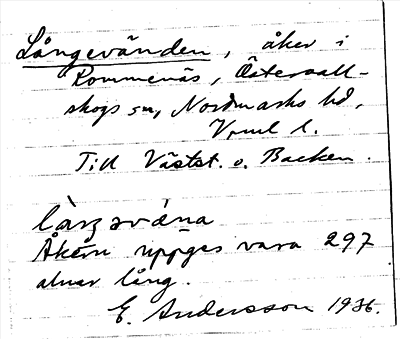 Långevänden, åker i
Rommenäs, Östervall-
skogs sn, Nordmarks hd,
Vrml l.
Till Västst. o. Backen.
Åkern uppges vara 297
alnar lång.
E. Andersson 1936.